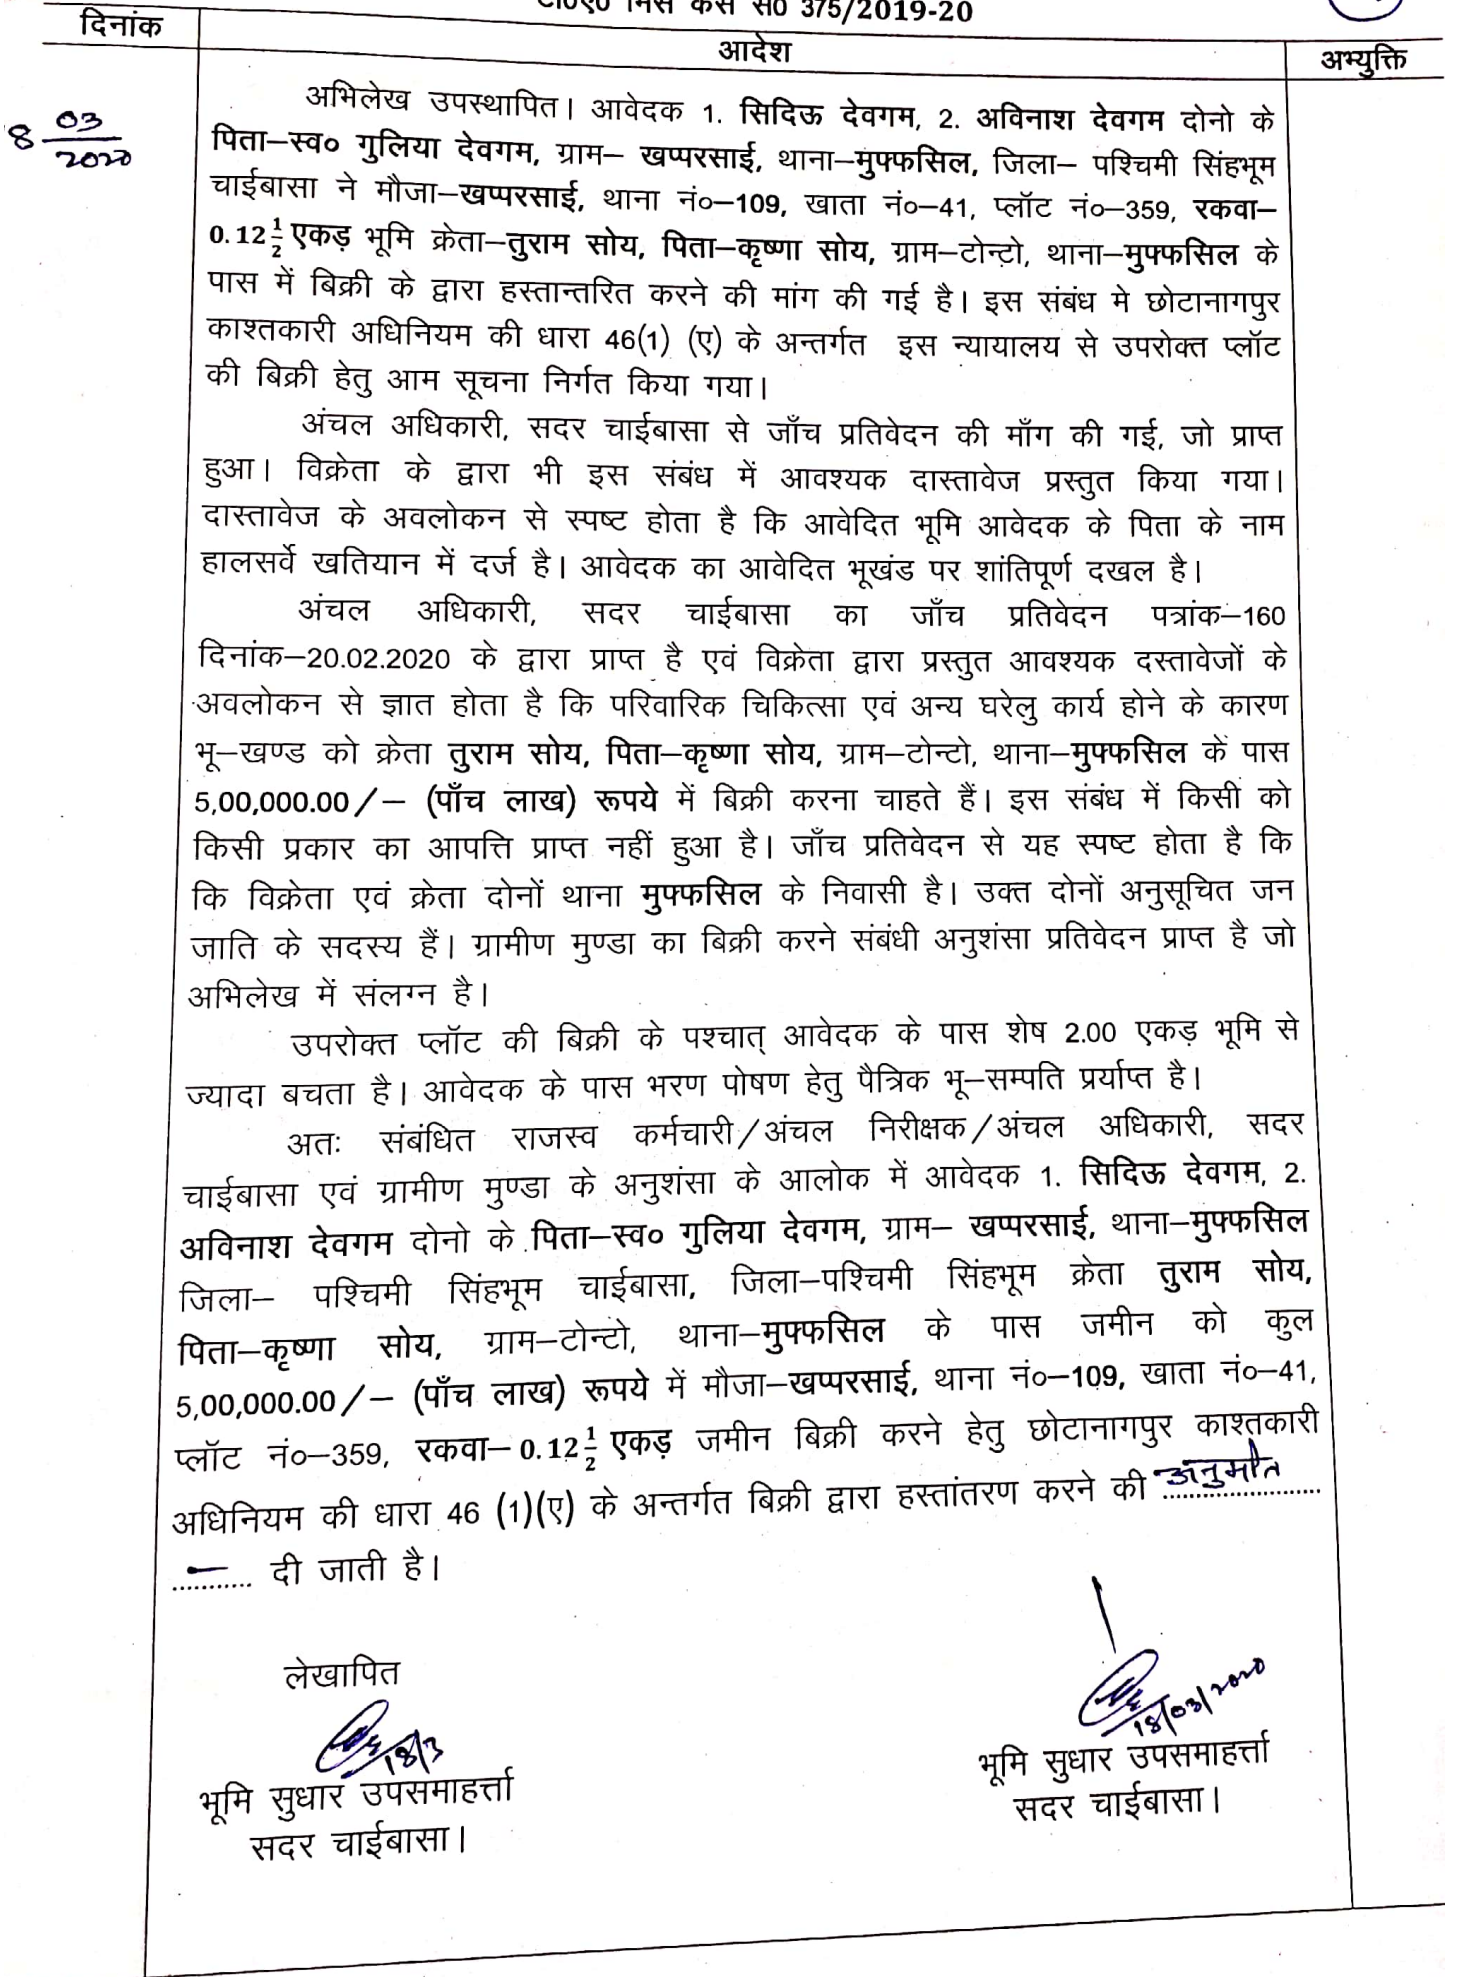 टी०ए० मिस केस सं० 375/2019-20
दिनांक
आदेश
अभ्युक्ति
8 03/2020
अभिलेख उपस्थापित। आवेदक 1. सिदिऊ देवगम, 2. अविनाश देवगम दोनो के
पिता–स्व० गुलिया देवगम, ग्राम– खप्परसाई, थाना–मुफ्फसिल, जिला– पश्चिमी सिंहभूम
चाईबासा ने मौजा–खप्परसाई, थाना नं०–109, खाता नं०–41, प्लॉट नं०–359, रकवा–
0.12½ एकड़ भूमि क्रेता–तुराम सोय, पिता–कृष्णा सोय, ग्राम–टोन्टो, थाना–मुफ्फसिल के
पास में बिक्री के द्वारा हस्तान्तरित करने की मांग की गई है। इस संबंध मे छोटानागपुर
काश्तकारी अधिनियम की धारा 46(1) (ए) के अन्तर्गत इस न्यायालय से उपरोक्त प्लॉट
की बिक्री हेतु आम सूचना निर्गत किया गया।
अंचल अधिकारी, सदर चाईबासा से जाँच प्रतिवेदन की माँग की गई, जो प्राप्त
हुआ। विक्रेता के द्वारा भी इस संबंध में आवश्यक दास्तावेज प्रस्तुत किया गया।
दास्तावेज के अवलोकन से स्पष्ट होता है कि आवेदित भूमि आवेदक के पिता के नाम
हालसर्वे खतियान में दर्ज है। आवेदक का आवेदित भूखंड पर शांतिपूर्ण दखल है।
अंचल अधिकारी, सदर चाईबासा का जाँच प्रतिवेदन पत्रांक–160
दिनांक–20.02.2020 के द्वारा प्राप्त है एवं विक्रेता द्वारा प्रस्तुत आवश्यक दस्तावेजों के
अवलोकन से ज्ञात होता है कि परिवारिक चिकित्सा एवं अन्य घरेलु कार्य होने के कारण
भू–खण्ड को क्रेता तुराम सोय, पिता–कृष्णा सोय, ग्राम–टोन्टो, थाना–मुफ्फसिल के पास
5,00,000.00/– (पाँच लाख) रूपये में बिक्री करना चाहते हैं। इस संबंध में किसी को
किसी प्रकार का आपत्ति प्राप्त नहीं हुआ है। जाँच प्रतिवेदन से यह स्पष्ट होता है कि
कि विक्रेता एवं क्रेता दोनों थाना मुफ्फसिल के निवासी है। उक्त दोनों अनुसूचित जन
जाति के सदस्य हैं। ग्रामीण मुण्डा का बिक्री करने संबंधी अनुशंसा प्रतिवेदन प्राप्त है जो
अभिलेख में संलग्न है।
उपरोक्त प्लॉट की बिक्री के पश्चात् आवेदक के पास शेष 2.00 एकड़ भूमि से
ज्यादा बचता है। आवेदक के पास भरण पोषण हेतु पैत्रिक भू–सम्पति प्रर्याप्त है।
अतः संबंधित राजस्व कर्मचारी/अंचल निरीक्षक/अंचल अधिकारी, सदर
चाईबासा एवं ग्रामीण मुण्डा के अनुशंसा के आलोक में आवेदक 1. सिदिऊ देवगम, 2.
अविनाश देवगम दोनो के पिता–स्व० गुलिया देवगम, ग्राम– खप्परसाई, थाना–मुफ्फसिल
जिला– पश्चिमी सिंहभूम चाईबासा, जिला–पश्चिमी सिंहभूम क्रेता तुराम सोय,
पिता–कृष्णा सोय, ग्राम–टोन्टो, थाना–मुफ्फसिल के पास जमीन को कुल
5,00,000.00/– (पाँच लाख) रूपये में मौजा–खप्परसाई, थाना नं०–109, खाता नं०–41,
प्लॉट नं०–359, रकवा– 0.12½ एकड़ जमीन बिक्री करने हेतु छोटानागपुर काश्तकारी
अधिनियम की धारा 46 (1)(ए) के अन्तर्गत बिक्री द्वारा हस्तांतरण करने की अनुमति
— दी जाती है।
लेखापित
18/3
भूमि सुधार उपसमाहर्त्ता
सदर चाईबासा।
18/03/2020
भूमि सुधार उपसमाहर्त्ता
सदर चाईबासा।